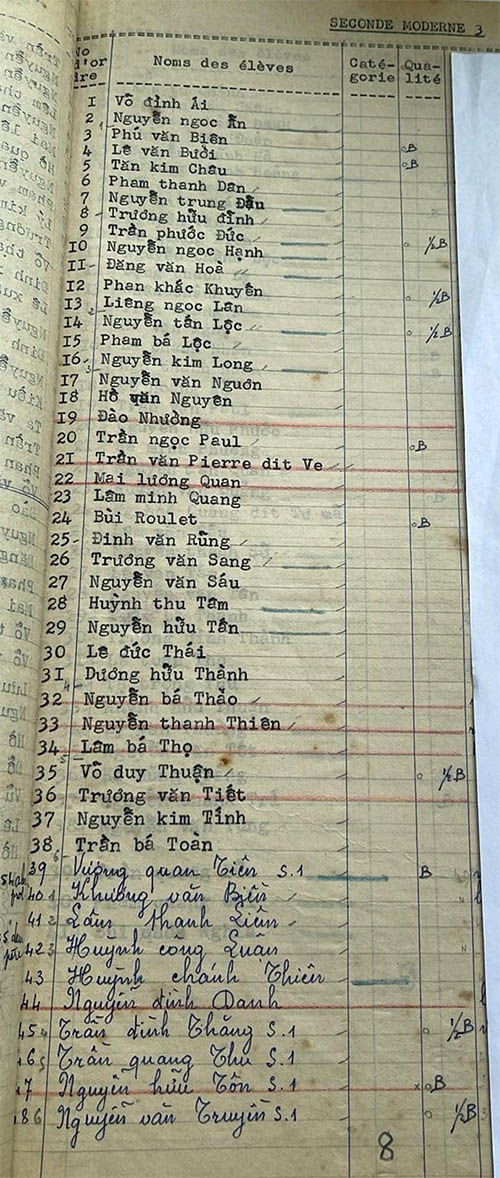 SECONDE MODERNE 3
No d'or dre Noms des élèves Caté-gorie Qua-lité
1 Võ đình Ái
2 Nguyễn ngọc Ẩn
3 Phú văn Biên
4 Lê văn Bưởi B
5 Tăn kim Châu B
6 Pham thanh Dân
7 Nguyễn trung Đậu
8 Trương hữu đỉnh
9 Trần phước Đức
10 Nguyễn ngọc Hạnh ½B
11 Đăng văn Hoà
12 Phan khắc Khuyến
13 Liêng ngọc Lân ½B
14 Nguyễn tấn Lộc ½B
15 Pham bá Lộc
16 Nguyễn kim Long
17 Nguyễn văn Ngươn
18 Hồ văn Nguyên
19 Đào Nhưởng
20 Trần ngọc Paul B
21 Trần văn Pierre dit Ve
22 Mai lương Quan
23 Lâm minh Quang
24 Bùi Roulet B
25 Đinh văn Rũng
26 Trương văn Sang
27 Nguyễn văn Sáu
28 Huỳnh thu Tâm
29 Nguyễn hữu Tấn
30 Lê đức Thái
31 Dương hữu Thành
32 Nguyễn bá Thảo
33 Nguyễn thanh Thiên
34 Lâm bá Thọ
35 Võ duy Thuận ½B
36 Trương văn Tiết
37 Nguyễn kim Tính
38 Trần bá Toàn
39 Vương quan Tiên S.1 B
40 Khương văn Biên
41 Lâm thanh Liên
42 Huỳnh công Luân
43 Huỳnh chánh Thiên
44 Nguyễn đình Danh
45 Trần đình Thăng S.1 ½B
46 Trần quang Thu S.1
47 Nguyễn hữu Tôn S.1 B
48 Nguyễn văn Truyền S.1 ½B
8